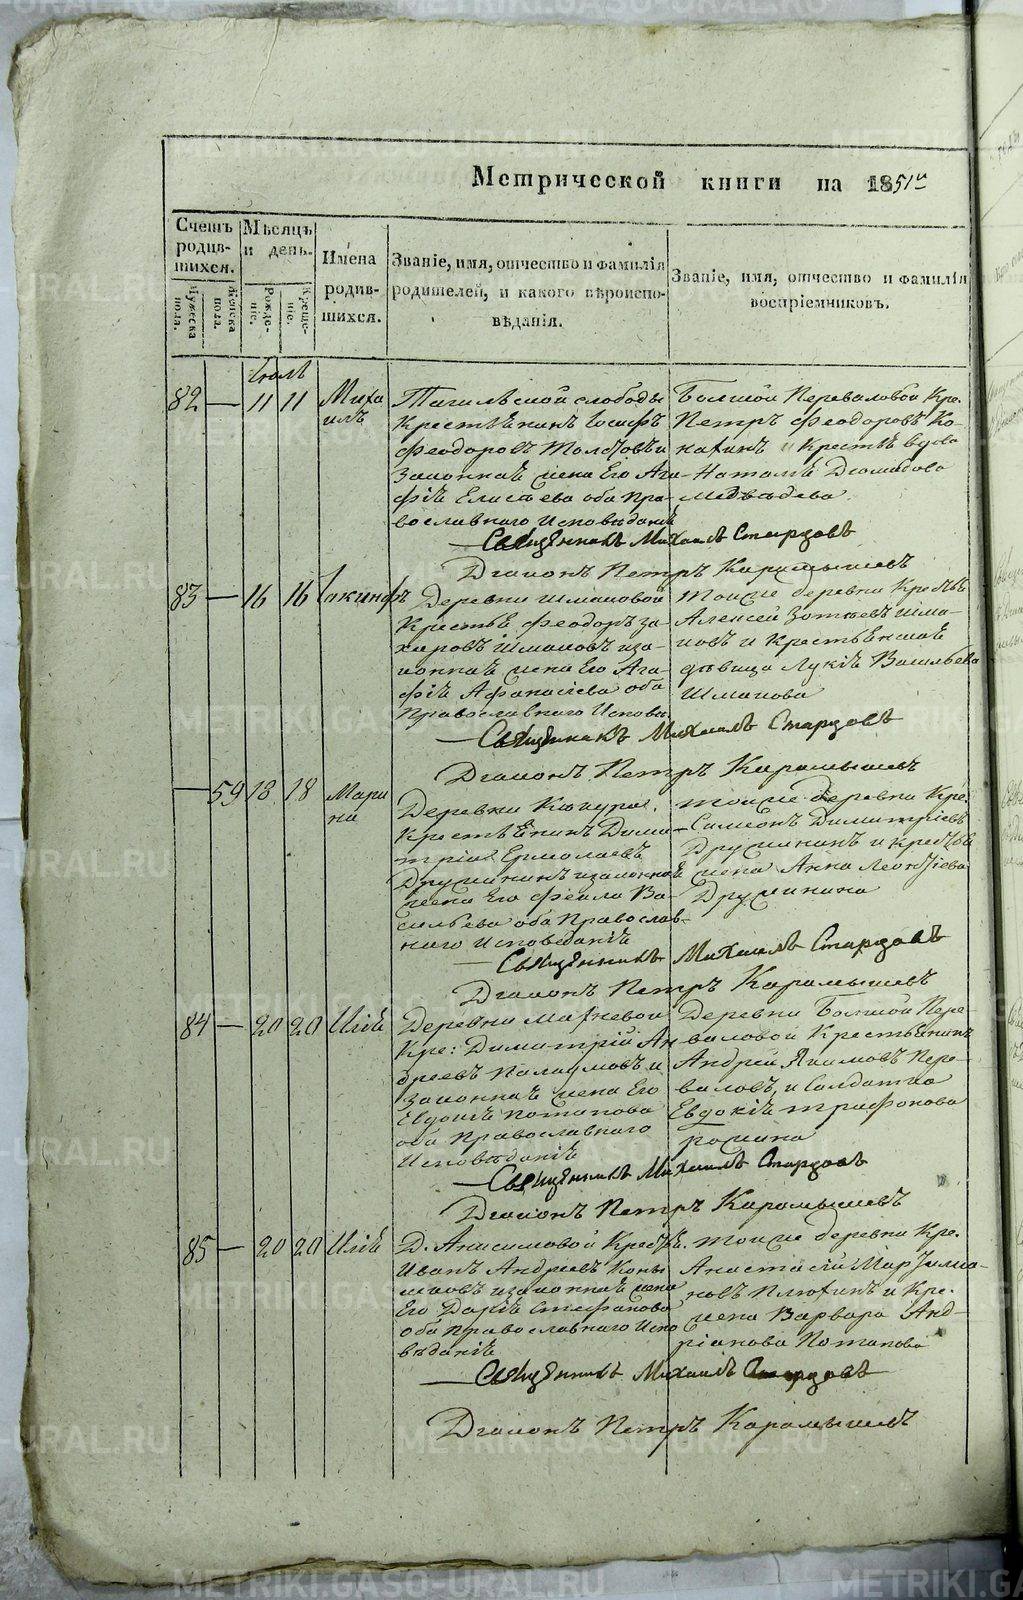 Метрической книги на 1851й
Счетъ родившихся.
Мѣсяцъ и день.
Имена родившихся.
Званіе, имя, отчество и фамилія родителей, и какого вѣроисповѣданія.
Званіе, имя, отчество и фамилія воспріемниковъ.
Мужеска пола.
Женска пола.
Рожденіе.
Крещеніе.
Іюль
82 — 11 11 Михаилъ
Тагильской слободы
Крестьянинъ Іосифъ
Феодоровъ
Законная жена Его Ага-
фія Елисѣева оба Пра-
вославнаго Исповѣданія
Большой Переваловой Кре.
Петръ Феодоровъ Ко-
Крестья вдова
Наталья Диомидова
Медвѣдева
Священникъ Михаилъ Старцовъ
Діаконъ Петръ Карамышевъ
83 — 16 16 Іакинфъ
Деревни Шмаковой
Крестья Феодоръ За-
харовъ Шмаковъ и за-
конная жена Его Ага-
фія Афанасіева оба
Православнаго Исповѣ.
Тойже деревни
Алексей Зотеевъ Шма-
ковъ и Крестьянская
дѣвица Лукія Васильева
Шмакова
Священникъ Михаилъ Старцовъ
Діаконъ Петръ Карамышевъ
— 59 18 18 Марина
Деревни
Крестьянинъ Дими-
трій Ермолаевъ
Дружининъ и законная
жена Его Фекла Ва-
сильева оба Православ-
наго Исповѣданія
Тойже деревни Кре.
Симеонъ Димитріевъ
Дружининъ и
жена Анна Леонтіева
Дружинина
Священникъ Михаилъ Старцовъ
Діаконъ Петръ Карамышевъ
84 — 20 20 Илія
Деревни Матневой
Кре: Димитрій Ан-
дреевъ и
Законная жена Его
Евдокія Потапова
оба Православнаго
Исповѣданія
Деревни Большой Пере-
валовой Крестьянинъ
Андрей Якимовъ Пере-
валовъ, и Солдатка
Евдокія Трифонова
Священникъ Михаилъ Старцовъ
Діаконъ Петръ Карамышевъ
85 — 20 20 Илія
Д. Анисимовой
Иванъ Андреевъ Коны-
шковъ и законная жена
Его Дарія Стефанова
оба Православнаго Испо
вѣданія
Тойже деревни Кре.
и Кре.
жена Варвара Анд-
ріанова Потапова
Священникъ Михаилъ Старцовъ
Діаконъ Петръ Карамышевъ
METRIKI.GASO-URAL.RU